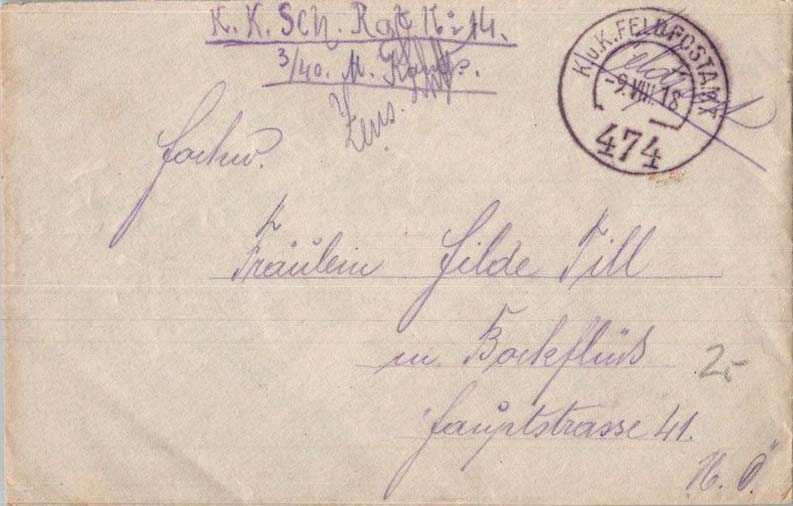 K. K. Sch. Rgt. No 14.
3/40. M. Komp.
Zens.
K.u.K. FELDPOSTAMT
-9.VIII.18
474
Hochw.
Fräulein Hilde Till
in Bockflüß
Hauptstrasse 41.
N. Ö.
2,-